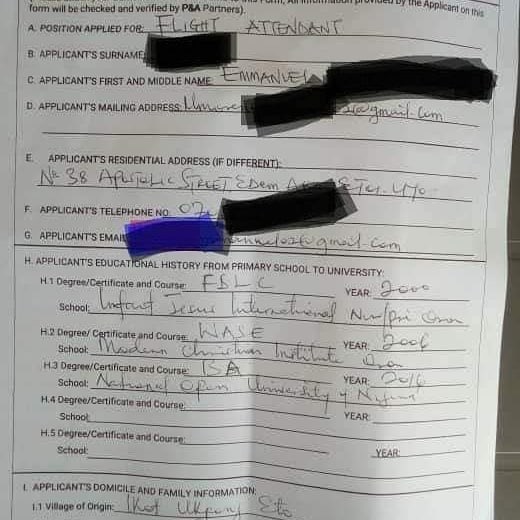 form will be checked and verified by P&A Partners).
by the Applicant on this
A. POSITION APPLIED FOR: FLIGHT ATTENDANT
B. APPLICANT'S SURNAME
C. APPLICANT'S FIRST AND MIDDLE NAME: EMMANUEL
D. APPLICANT'S MAILING ADDRESS: @gmail.com
E. APPLICANT'S RESIDENTIAL ADDRESS (IF DIFFERENT):
No 38 APOSTOLIC STREET EDEM UYO
F. APPLICANT'S TELEPHONE NO. 07
G. APPLICANT'S EMAIL @gmail.com
H. APPLICANT'S EDUCATIONAL HISTORY FROM PRIMARY SCHOOL TO UNIVERSITY:
H.1 Degree/Certificate and Course: FSLC YEAR: 2000
School: Infant Jesus International Nur/pri Oron
H.2 Degree/ Certificate and Course: WASE YEAR: 2006
School: Modern Christian Institute Oron
H.3 Degree/Certificate and Course: BA YEAR: 2016
School: National Open University of Nigeria
H.4 Degree/Certificate and Course:
School: YEAR:
H.5 Degree/Certificate and Course:
School: YEAR:
I. APPLICANT'S DOMICILE AND FAMILY INFORMATION:
I.1 Village of Origin: Ikot